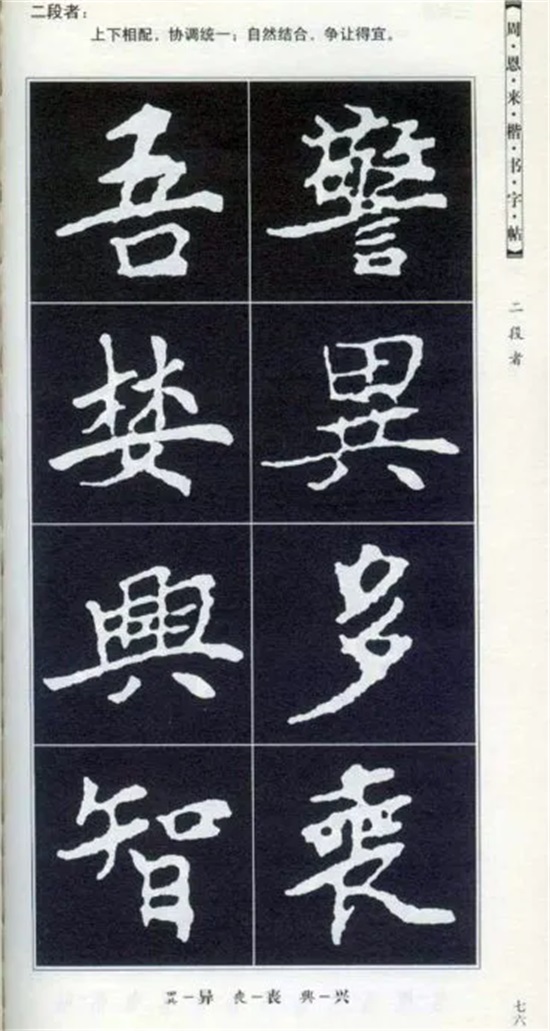 二段者：
上下相配，协调统一；自然结合，争让得宜。
【周·恩·来·楷·书·字·帖】
二段者
警
異
多
喪
吾
婪
興
智
異－异 喪－丧 興－兴
七六